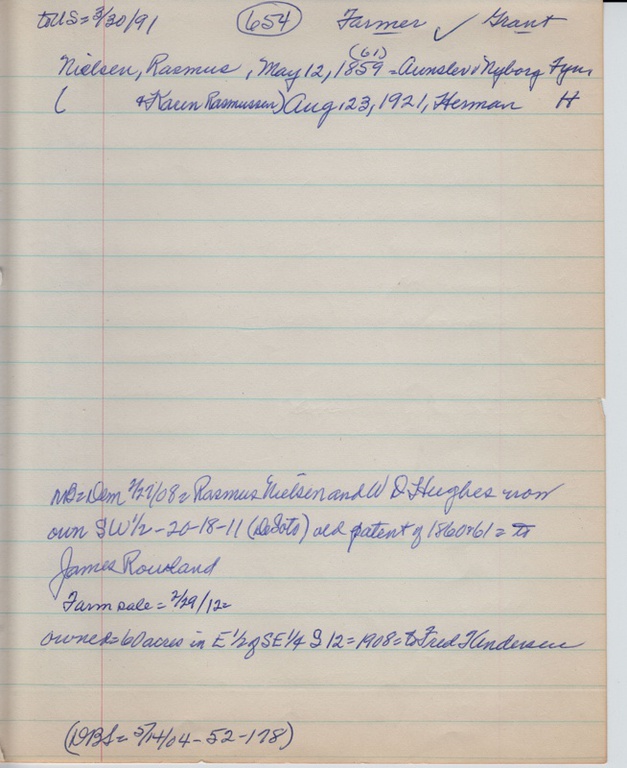 to US = 3/30/91 (654) Farmer ✓ Grant
(61)
Nielsen, Rasmus, May 12, 1859 = Aunslev i Nyborg Fyns
( & Karen Rasmussen) Aug. 23, 1921, Herman H
NB = Dem 2/27/08 = Rasmus Nielsen and W D Hughes now
own SW 1/2 - 20-18-11 (DeSoto) old patent of 1860 & 61 = to
James Rowland
Farm sale = 2/29/12 =
owned = 60 acres in E 1/2 of SE 1/4 S 12 = 1908 = to Fred Andersen
(DBS = 5/14/04 - 52 - 178)